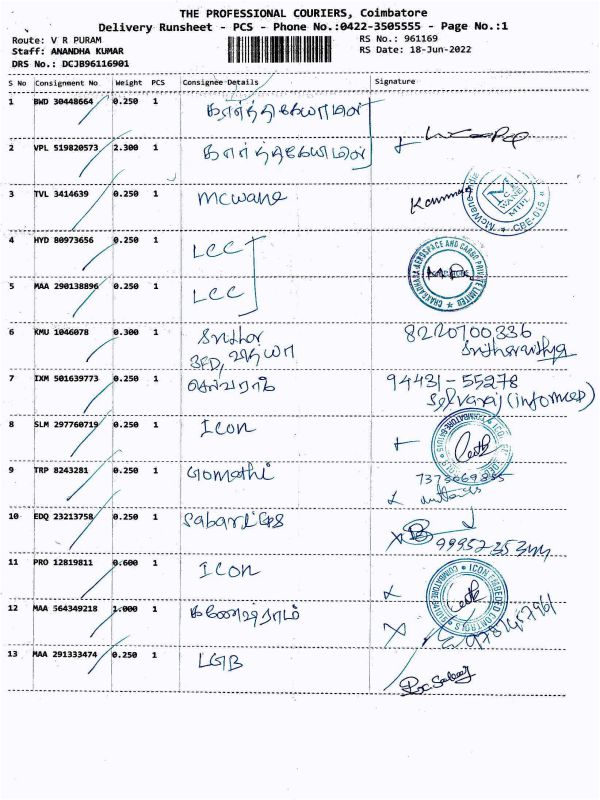 THE PROFESSIONAL COURIERS, Coimbatore
Delivery Runsheet - PCS - Phone No.:0422-3505555 - Page No.:1
Route: V R PURAM
RS No.: 961169
Staff: ANANDHA KUMAR
RS Date: 18-Jun-2022
DRS No.: DCJB96116901
S No Consignment No. Weight PCS Consignee Details Signature
1 BWD 30448664 0.250 1
2 VPL 519820573 2.300 1
3 TVL 3414639 0.250 1 mcwane
4 HYD 80973656 0.250 1 LCC
5 MAA 290138896 0.250 1 LCC
CHAKRADHARA AEROSPACE AND CARGO PRIVATE LIMITED
6 KMU 1046078 0.300 1 Sridhar 8220700336
3FD, வித்யா
7 IXM 501639773 0.250 1 செல்வராஜ் 94431-55278
Selvaraj
8 SLM 297760719 0.250 1 Icon
9 TRP 8243281 0.250 1 Gomathi
10 EDQ 23213758 0.250 1 Sabari
11 PRO 12819811 0.600 1 Icon
ICON EMBEDED CONTROLS COIMBATORE
12 MAA 564349218 1.000 1
13 MAA 291333474 0.250 1 LGB